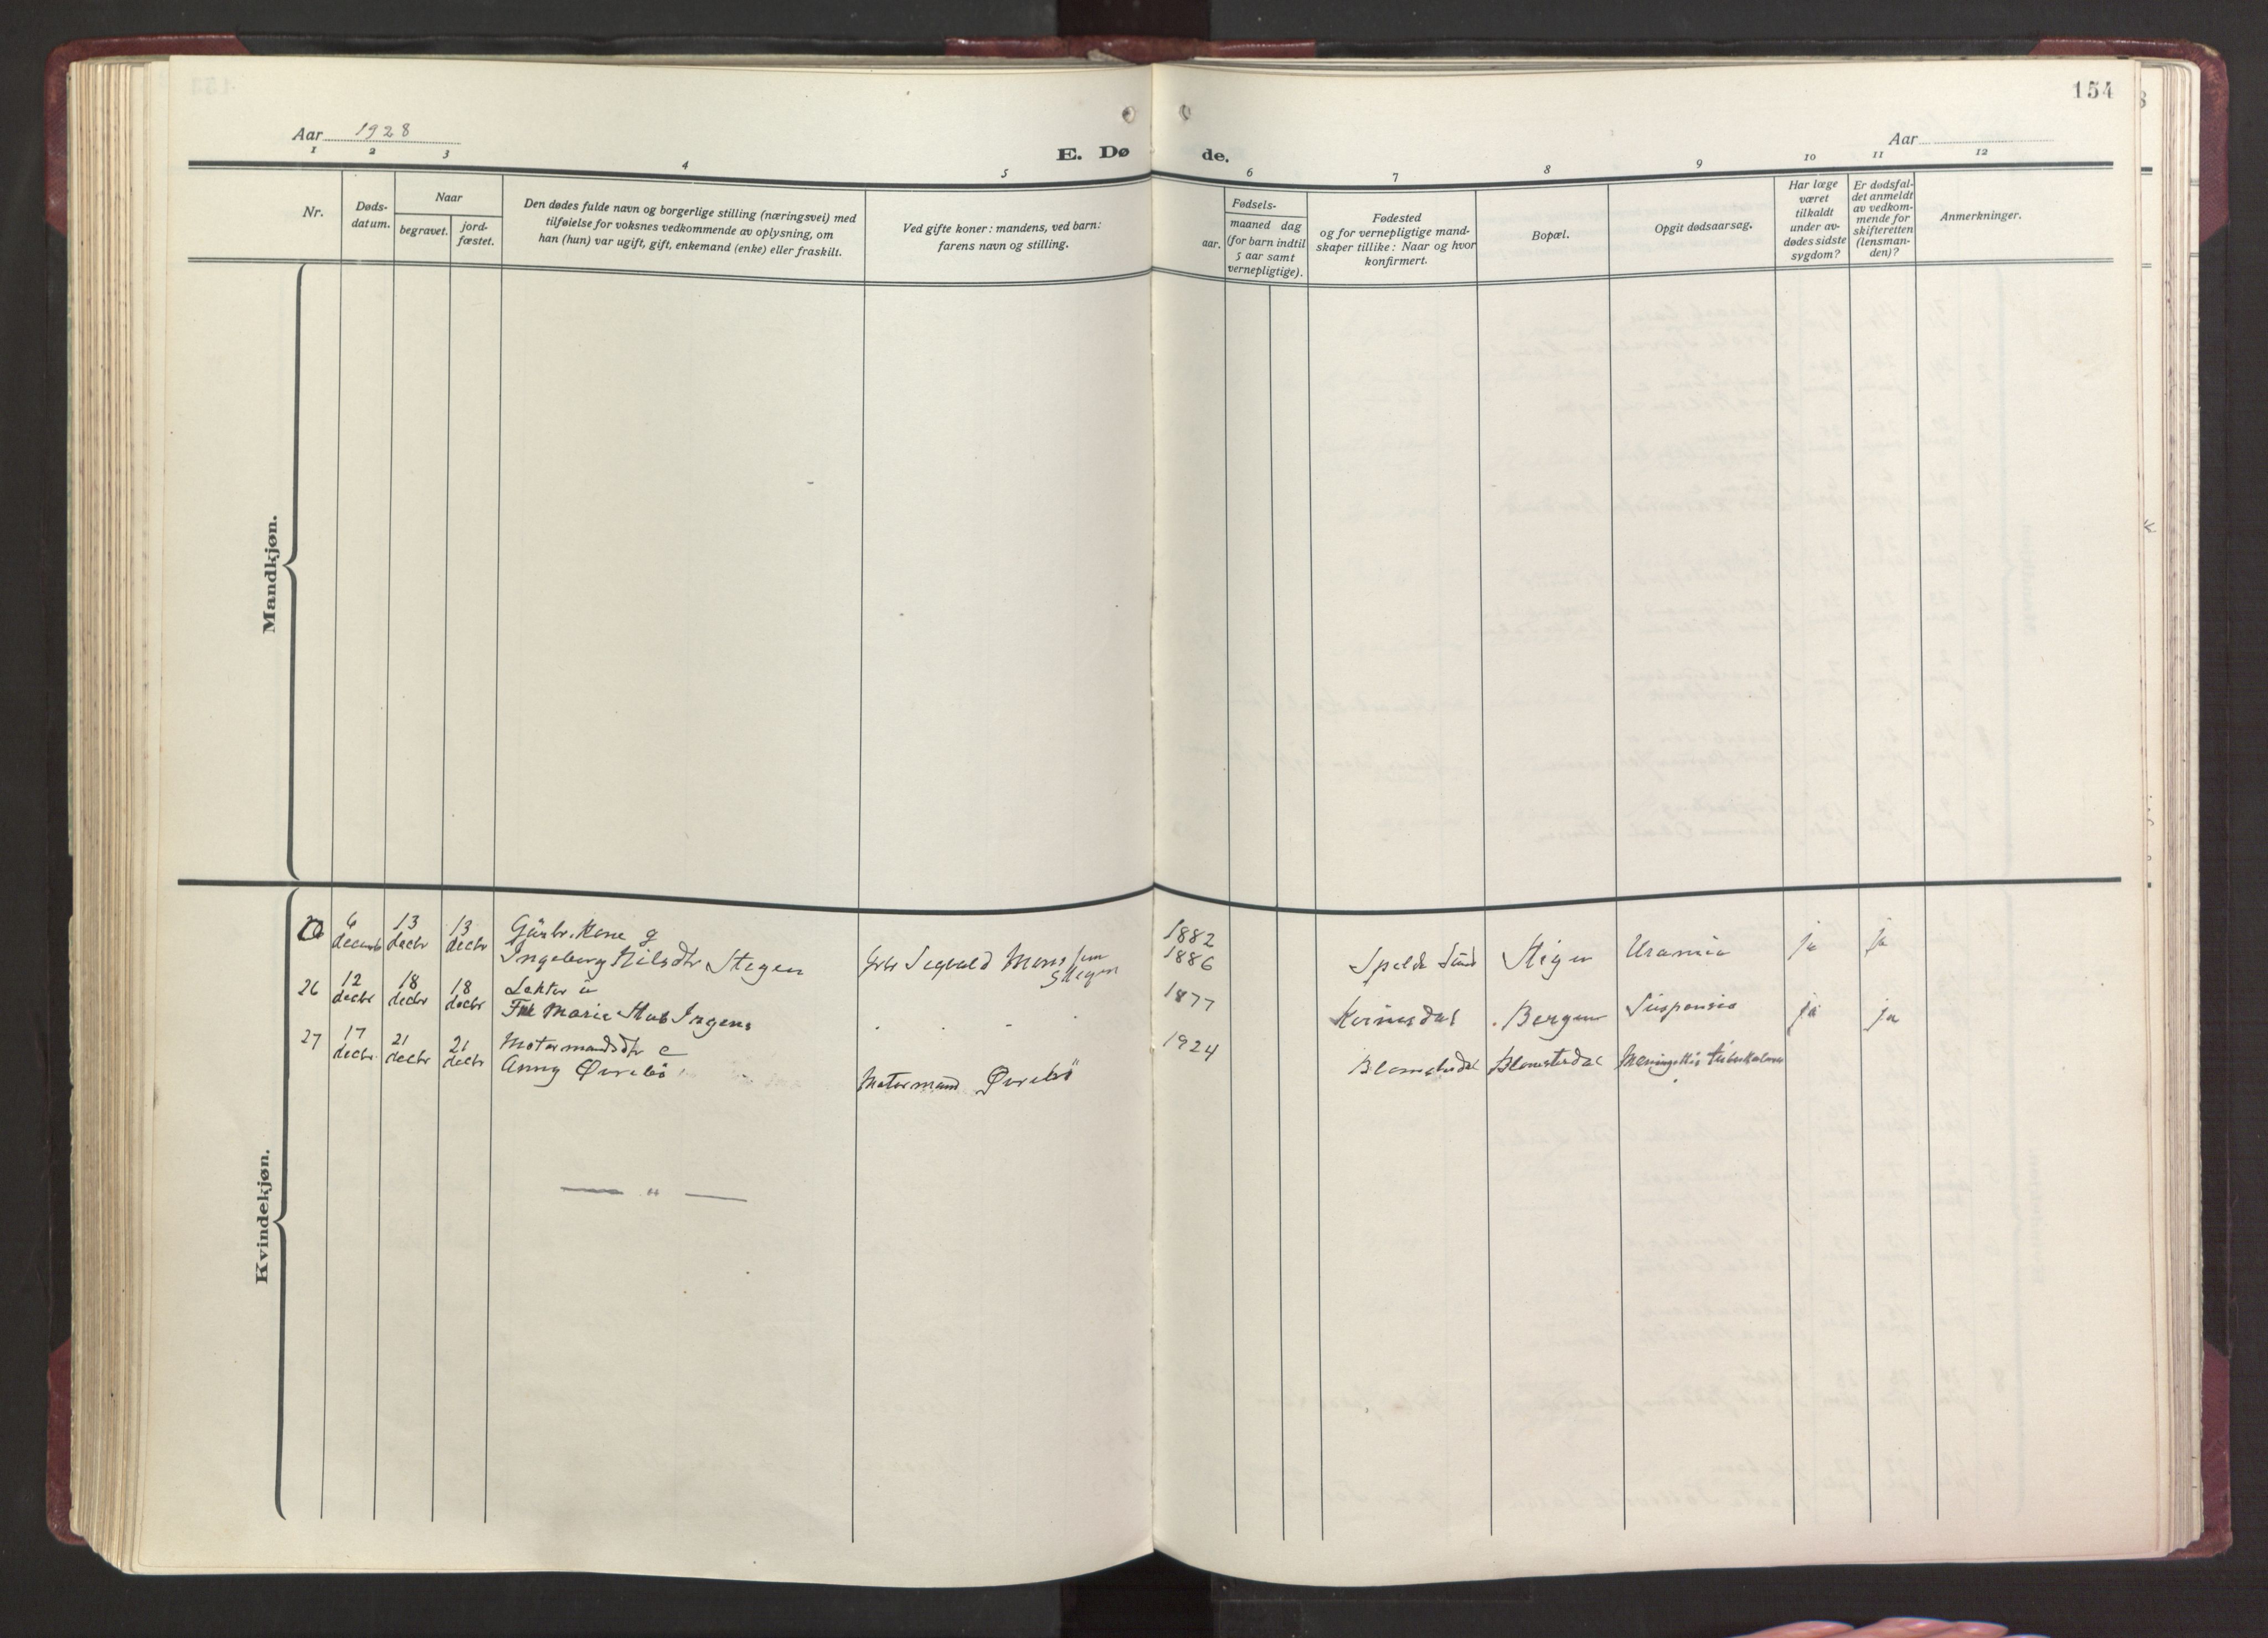 154
Aar 1928
Aar
E. Dø
de.
1 2 3 4 5 6 7 8 9 10 11 12
Nr.
Døds-
datum.
Naar
begravet.
jord-
fæstet.
Den dødes fulde navn og borgerlige stilling (næringsvei) med
tilføielse for voksnes vedkommende av oplysning, om
han (hun) var ugift, gift, enkemand (enke) eller fraskilt.
Ved gifte koner: mandens, ved barn:
farens navn og stilling.
Fødsels-
aar.
maaned dag
(for barn indtil
5 aar samt
vernepligtige).
Fødested
og for vernepligtige mand-
skaper tillike: Naar og hvor
konfirmert.
Bopæl.
Opgit dødsaarsag.
Har læge
været
tilkaldt
under av-
dødes sidste
sygdom?
Er dødsfal-
det anmeldt
av vedkom-
mende for
skifteretten
(lensman-
den)?
Anmerkninger.
Mandkjøn.
Kvindekjøn.
6 13 13 Gårbr. kone g 1882
decbr decbr Ingeborg Nilsdtr Stegen Sigvald Monssen 1886 Spelde Sund Uræmia ja ja
Stegen
26 12 18 18 Lektor u 1877
decbr decbr decbr Marie Stub Irgens Bergen ja ja
27 17 21 21 Motormandsdtr 1924
decbr decbr decbr Anny Øvrebö Motormand Øvrebö Blomsterdal Blomsterdal
— " —